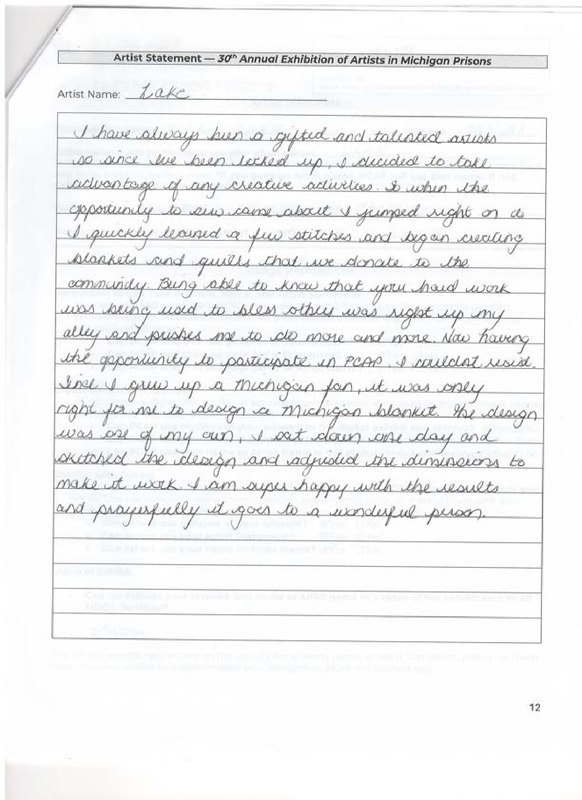 Artist Statement — 30th Annual Exhibition of Artists in Michigan Prisons
Artist Name: Lake
I have always been a gifted and talented artists
so since I've been locked up, I decided to take
advantage of any creative activities. So when the
opportunity to sew came about I jumped right on it
I quickly learned a few stitches and began creating
blankets and quilts that we donate to the
community. Being able to know that your hard work
was being used to bless others was right up my
alley and pushes me to do more and more. Now having
the opportunity to participate in PCAP, I couldnt resist.
Since I grew up a Michigan fan, it was only
right for me to design a Michigan blanket. The design
was one of my own, I sat down one day and
sketched the design and adjusted the dimensions to
make it work. I am super happy with the results
and prayerfully it goes to a wonderful person.
12